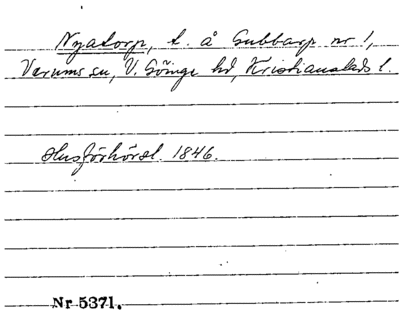 Nyatorp, t. å Gubbarp nr 1,
Verums sn, V. Göinge hd, Kristianstads l.
Husförhörsl. 1846.
Nr 5371.